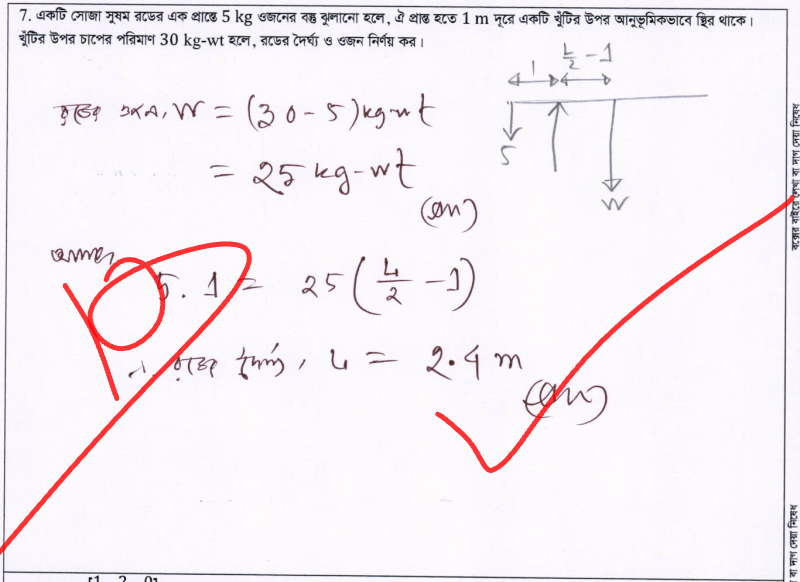 7. একটি সোজা সুষম রডের এক প্রান্তে 5 kg ওজনের বস্তু ঝুলানো হলে, ঐ প্রান্ত হতে 1 m দূরে একটি খুঁটির উপর আনুভূমিকভাবে স্থির থাকে।
খুঁটির উপর চাপের পরিমাণ 30 kg-wt হলে, রডের দৈর্ঘ্য ও ওজন নির্ণয় কর।
1 L/2 - 1
5 W
রডের ওজন, W = (30 - 5) kg-wt
= 25 kg-wt
(Ans)
আবার,
5. 1 = 25 (L/2 - 1)
∴ রডের দৈর্ঘ্য, L = 2.4 m
(Ans)
বক্সের বাইরে লেখা বা দাগ দেয়া নিষেধ
বা দাগ দেয়া নিষেধ